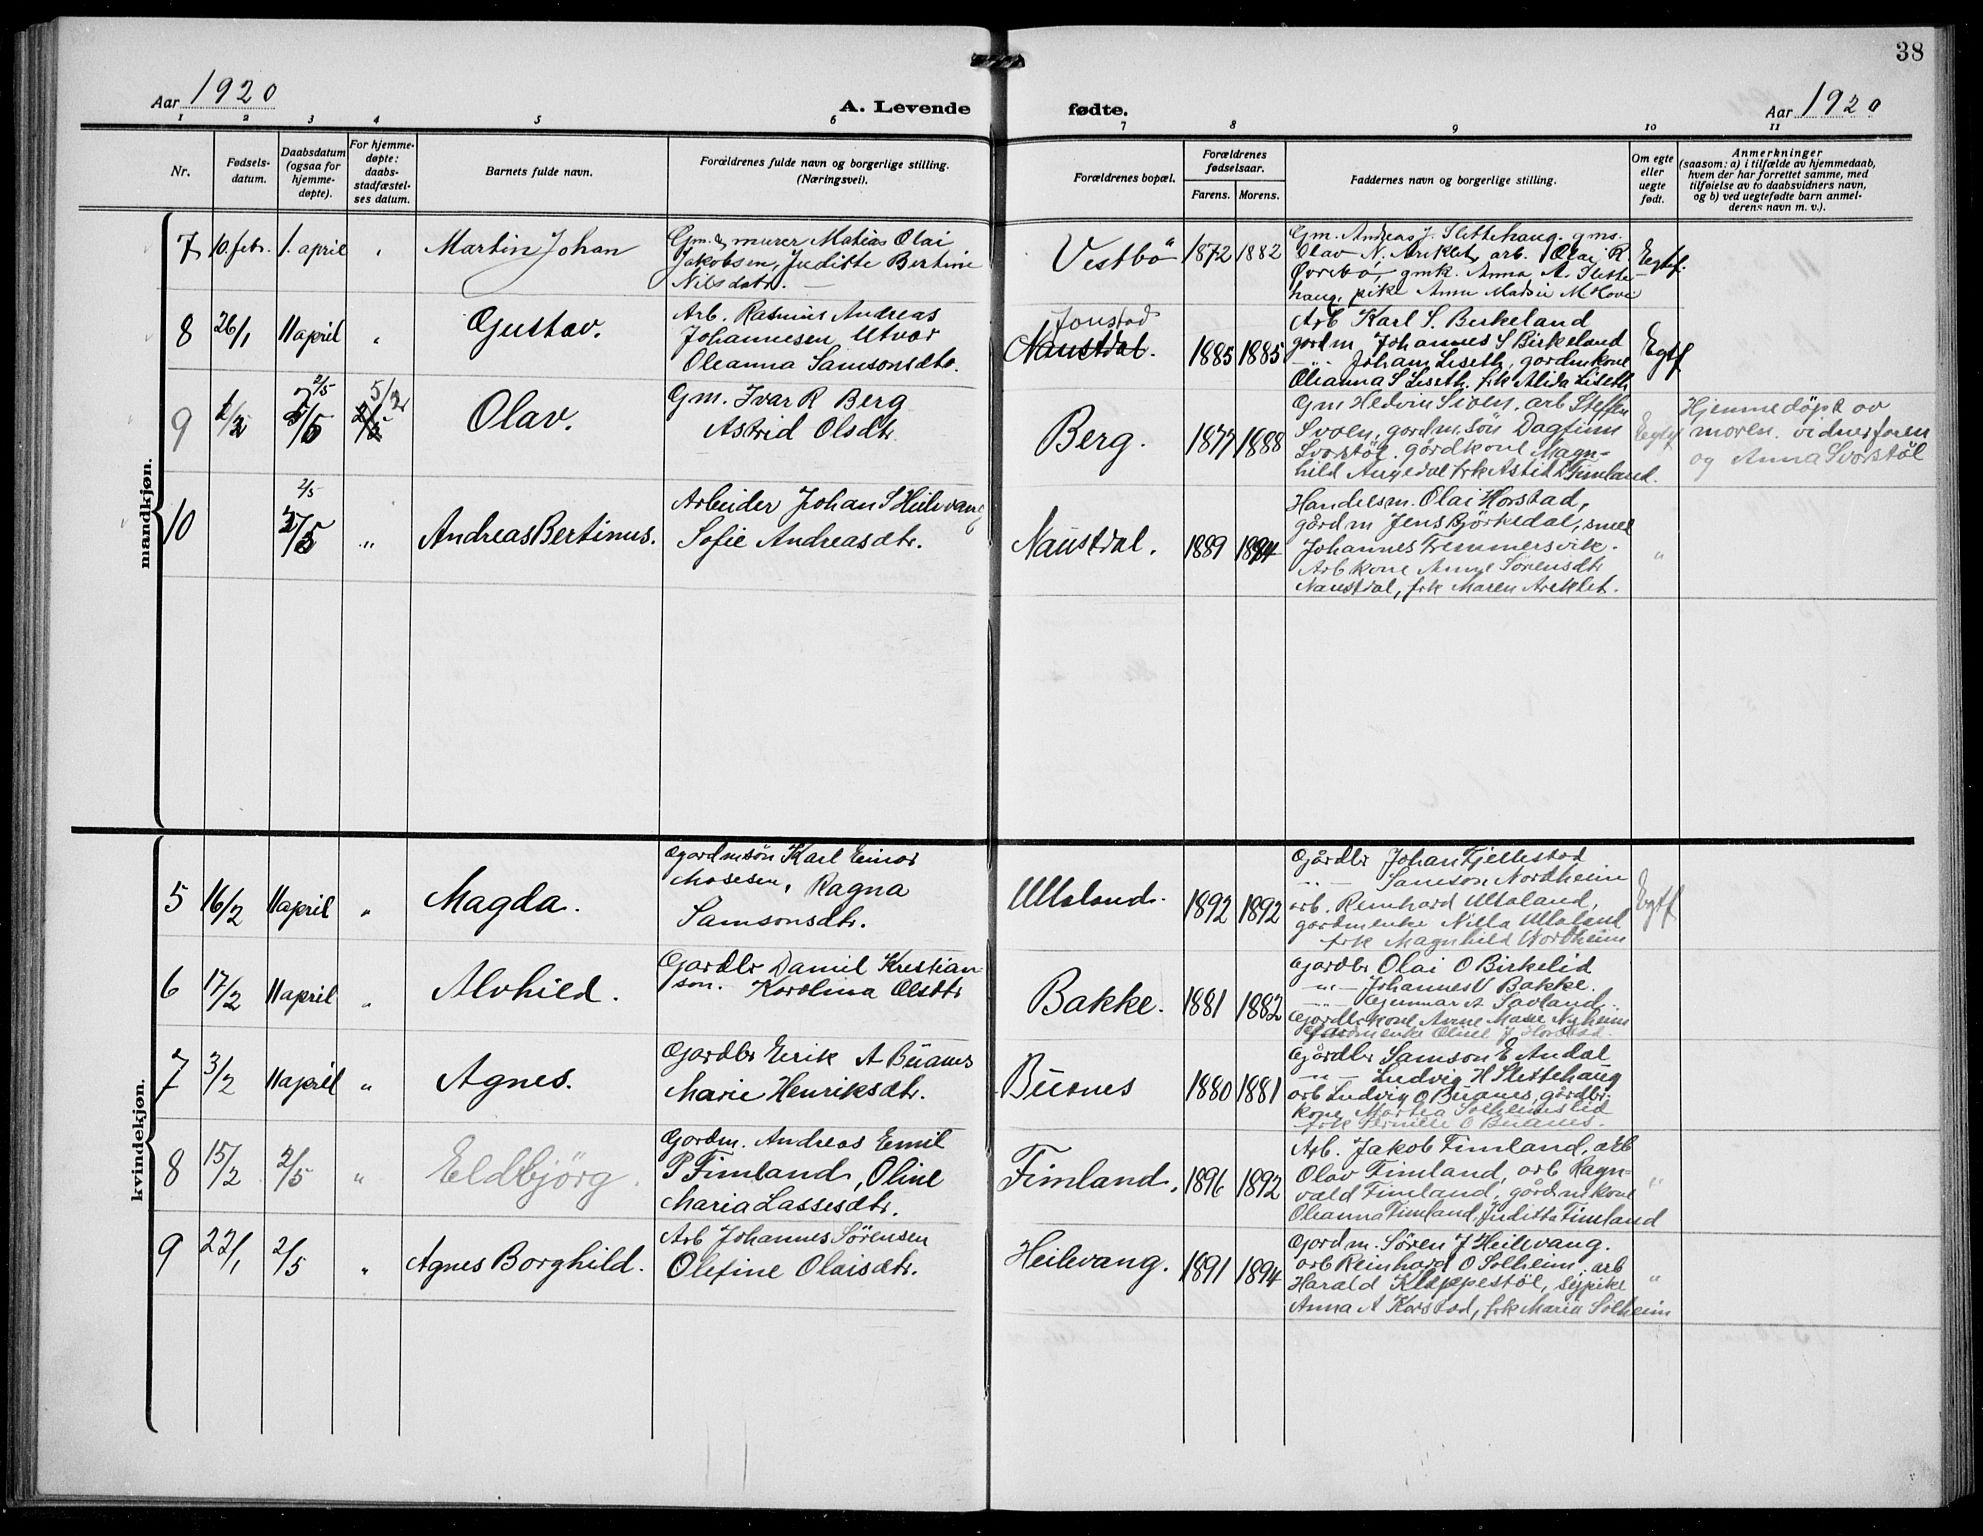 38
Aar 1920
A. Levende fødte.
Aar 1920
1 2 3 4 5 6 7 8 9 10 11
Nr.
Fødsels-
datum.
Daabsdatum
(ogsaa for
hjemme-
døpte).
For hjemme-
døpte:
daabs-
stadfæstel-
ses datum.
Barnets fulde navn.
Forældrenes fulde navn og borgerlige stilling.
(Næringsvei).
Forældrenes bopæl.
Forældrenes
fødselsaar.
Farens. Morens.
Faddernes navn og borgerlige stilling.
Om egte
eller
uegte
født.
Anmerkninger
(saasom: a) i tilfælde av hjemmedaab,
hvem der har forrettet samme, med
tilføielse av to daabsvidners navn,
og b) ved uegtefødte barn anmel-
derens navn m. v.).
mandkjøn.
7 10. febr. 1. april " Martin Johan
Gm. & murer Matias Olai
Jakobsen, Juditte Bertine
Nilsdatr.
Vestbö 1872 1882
Gm. Andreas J. Slettehaug. gms.
Olav N. Areklet, arb. Olai R.
Øvrebø gmk. Anna A. Slette-
haug, pike Anna M Hove
Egtef.
8 26/1 11 april " Gustav.
Arb. Rasmus Andreas
Johannesen, Utvær
Oleanna Samsonsdtr.
Jonstad
Naustdal. 1885 1885
Arb Karl S. Birkeland
gordm Johannes S Birkeland
" Johan Liseth, gordmkone
Oleanna S Liseth, frk Alida Liseth
Egtf
9 2/5 5/2 Olav.
Gm. Ivar R Berg
Astrid Olsdtr.
Berg. 1877 1888
Gm Hedvin Svoen, arb Steffen
Svoen, gordm. søn Dagfinn
Svorstöl. gårdkone Magn-
hild Angedal frk Astid Fimland.
Egtf
Hjemmedøpt av
moren. vidner faren
og Anna Svorstöl
10 2/5 " Andreas Bertinus.
Arbeider Johan S Heilevang
Sofie Andreasdtr.
Naustdal. 1889
Handelsm. Olai Horstad,
gårdm Jens Björkedal, smed
Johannes Fremmersvik.
Arb kone Anne Sörensdtr
Naustdal, frk Maren Areklet.
"
kvindekjøn.
5 16/2 11 april " Magda.
Gordmsøn Karl Einar
Mosesen, Ragna
Samsonsdtr.
Ullaland. 1892 1892
Gårdbr Johan Fjellestad
" Samson Nordheim
arb. Reinhard Ullaland,
gordmenke Nilla Ullaland
frk Magnhild Nordheim
Egtf
6 17/2 11 april " Alvhild.
Gardbr Daniel Kristian-
son. Karolina Olsdtr
Bakke. 1881 1882
Gardbr Olai O Birkelid
" Johannes V Bakke.
" Gunnar A Savland.
Gordbrkone Anne Marie Nyheim
Gordmenke Oline J Horstad.
7 3/2 11 april " Agnes.
Gordbr Eirik A Buanes
Marie Henriksdtr.
Buanes 1880 1881
Gårdbr Samson E Andal
" Ludvig H Slettehaug
arb Ludvig O Buanes, gårdbr.
kone Martea Solheimslid
frk Pernille O Buanes.
8 15/2 2/5 " Eldbjörg.
Gordm. Andreas Emil
P Fimland, Oline
Maria Lassesdtr.
Fimland. 1896 1892
Arb. Jakob Fimland, arb
Olav Fimland, arb Ragn-
vald Fimland, gårdmkone
Oleanna Fimland, Juditta Fimland
"
9 22/1 2/5 " Agnes Borghild.
Arb Johannes Sörensen
Olefine Olaisdtr.
Heilevang. 1891 1894
Gordm. Sören J Heilevang.
arb Reinhard O Solheim. arb
Harald Kleppestöl, sypike
Anna A Korstad, frk Maria Solheim
"